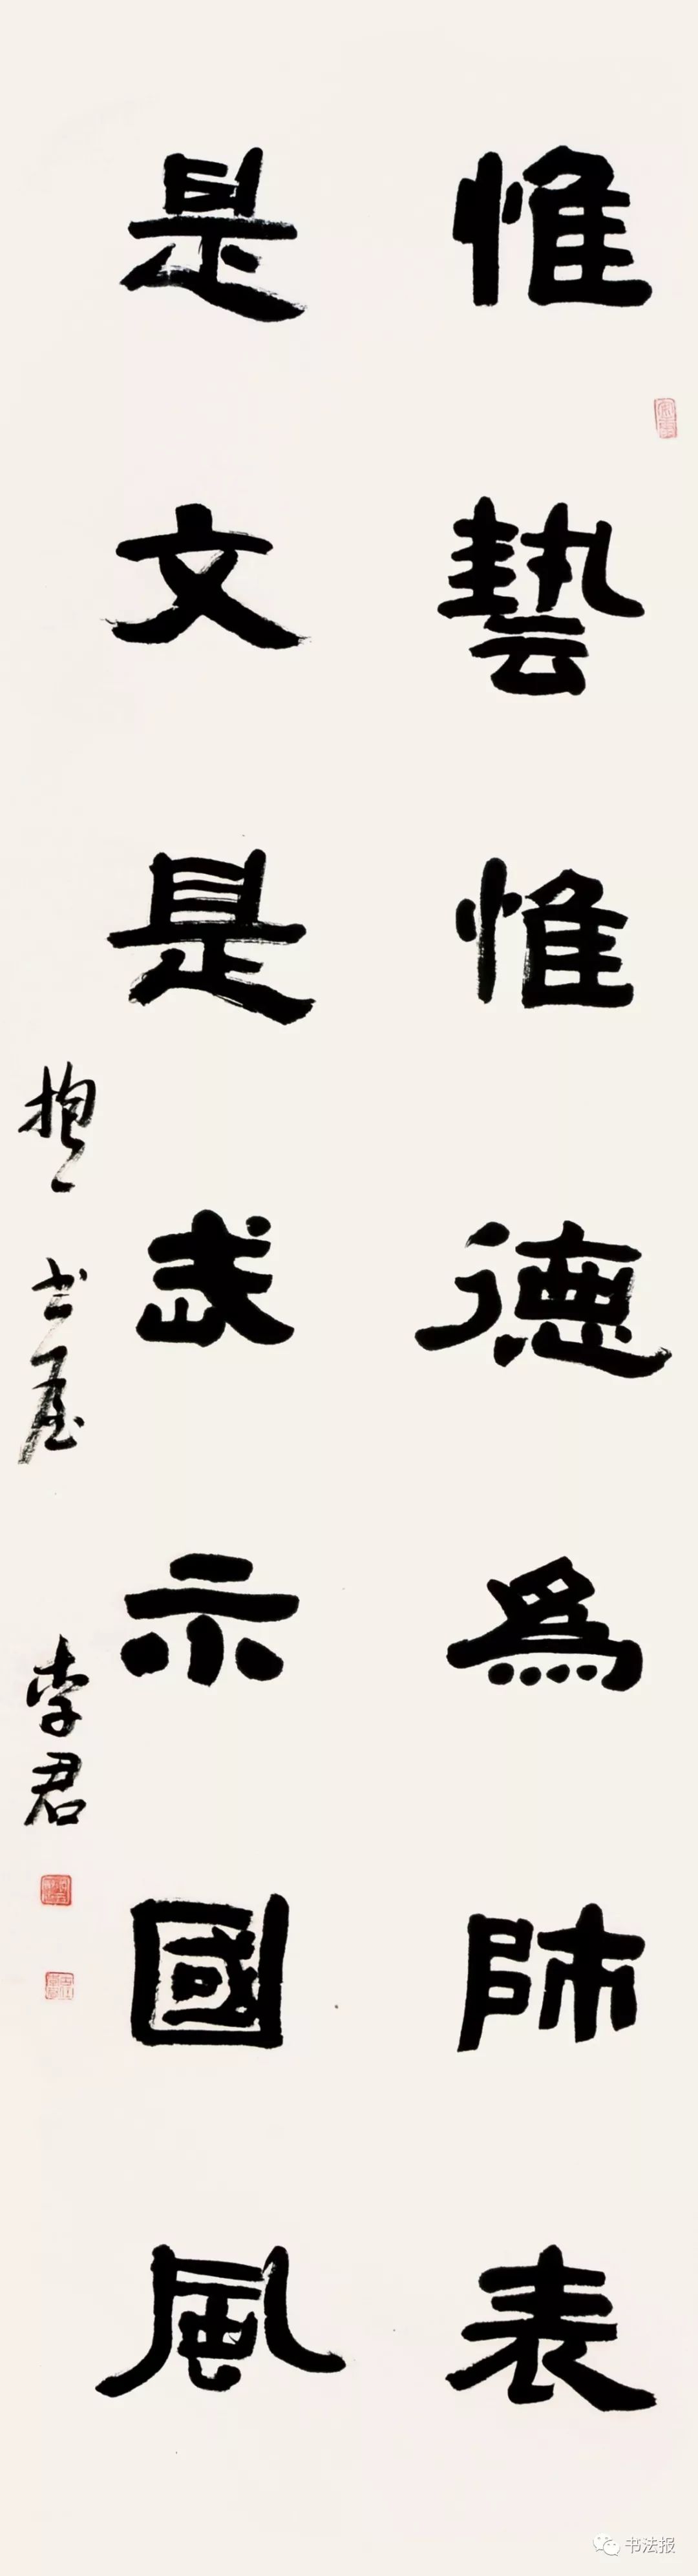 惟藝惟德爲師表
是文是武示國風
抱一書屋 李君
书法报